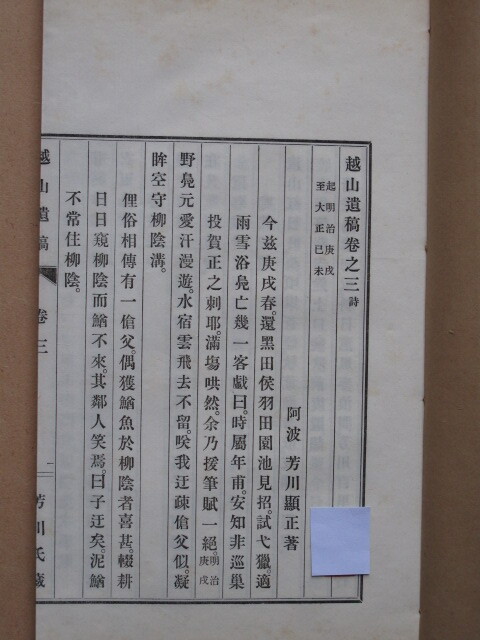 越山遺稿卷之三 詩
起明治庚戌
至大正己未
阿波 芳川顯正著
今玆庚戌春。還黑田侯羽田園池見招。試弋獵。適
雨雪浴鳧亡幾一客戲曰。時屬年甫。安知非巡巢
投賀正之刺耶。滿塲哄然。余乃援筆賦一絕。明治庚戌
野鳧元愛汗漫遊。水宿雲飛去不留。咲我迂疎傖父似。凝
眸空守柳陰溝。
俚俗相傳有一傖父。偶獲鰌魚於柳陰者喜甚。輟耕
日日窺柳陰而鰌不來。其鄰人笑焉。曰子迂矣。泥鰌
不常住柳陰。
越山遺稿 卷三 二 芳川氏藏